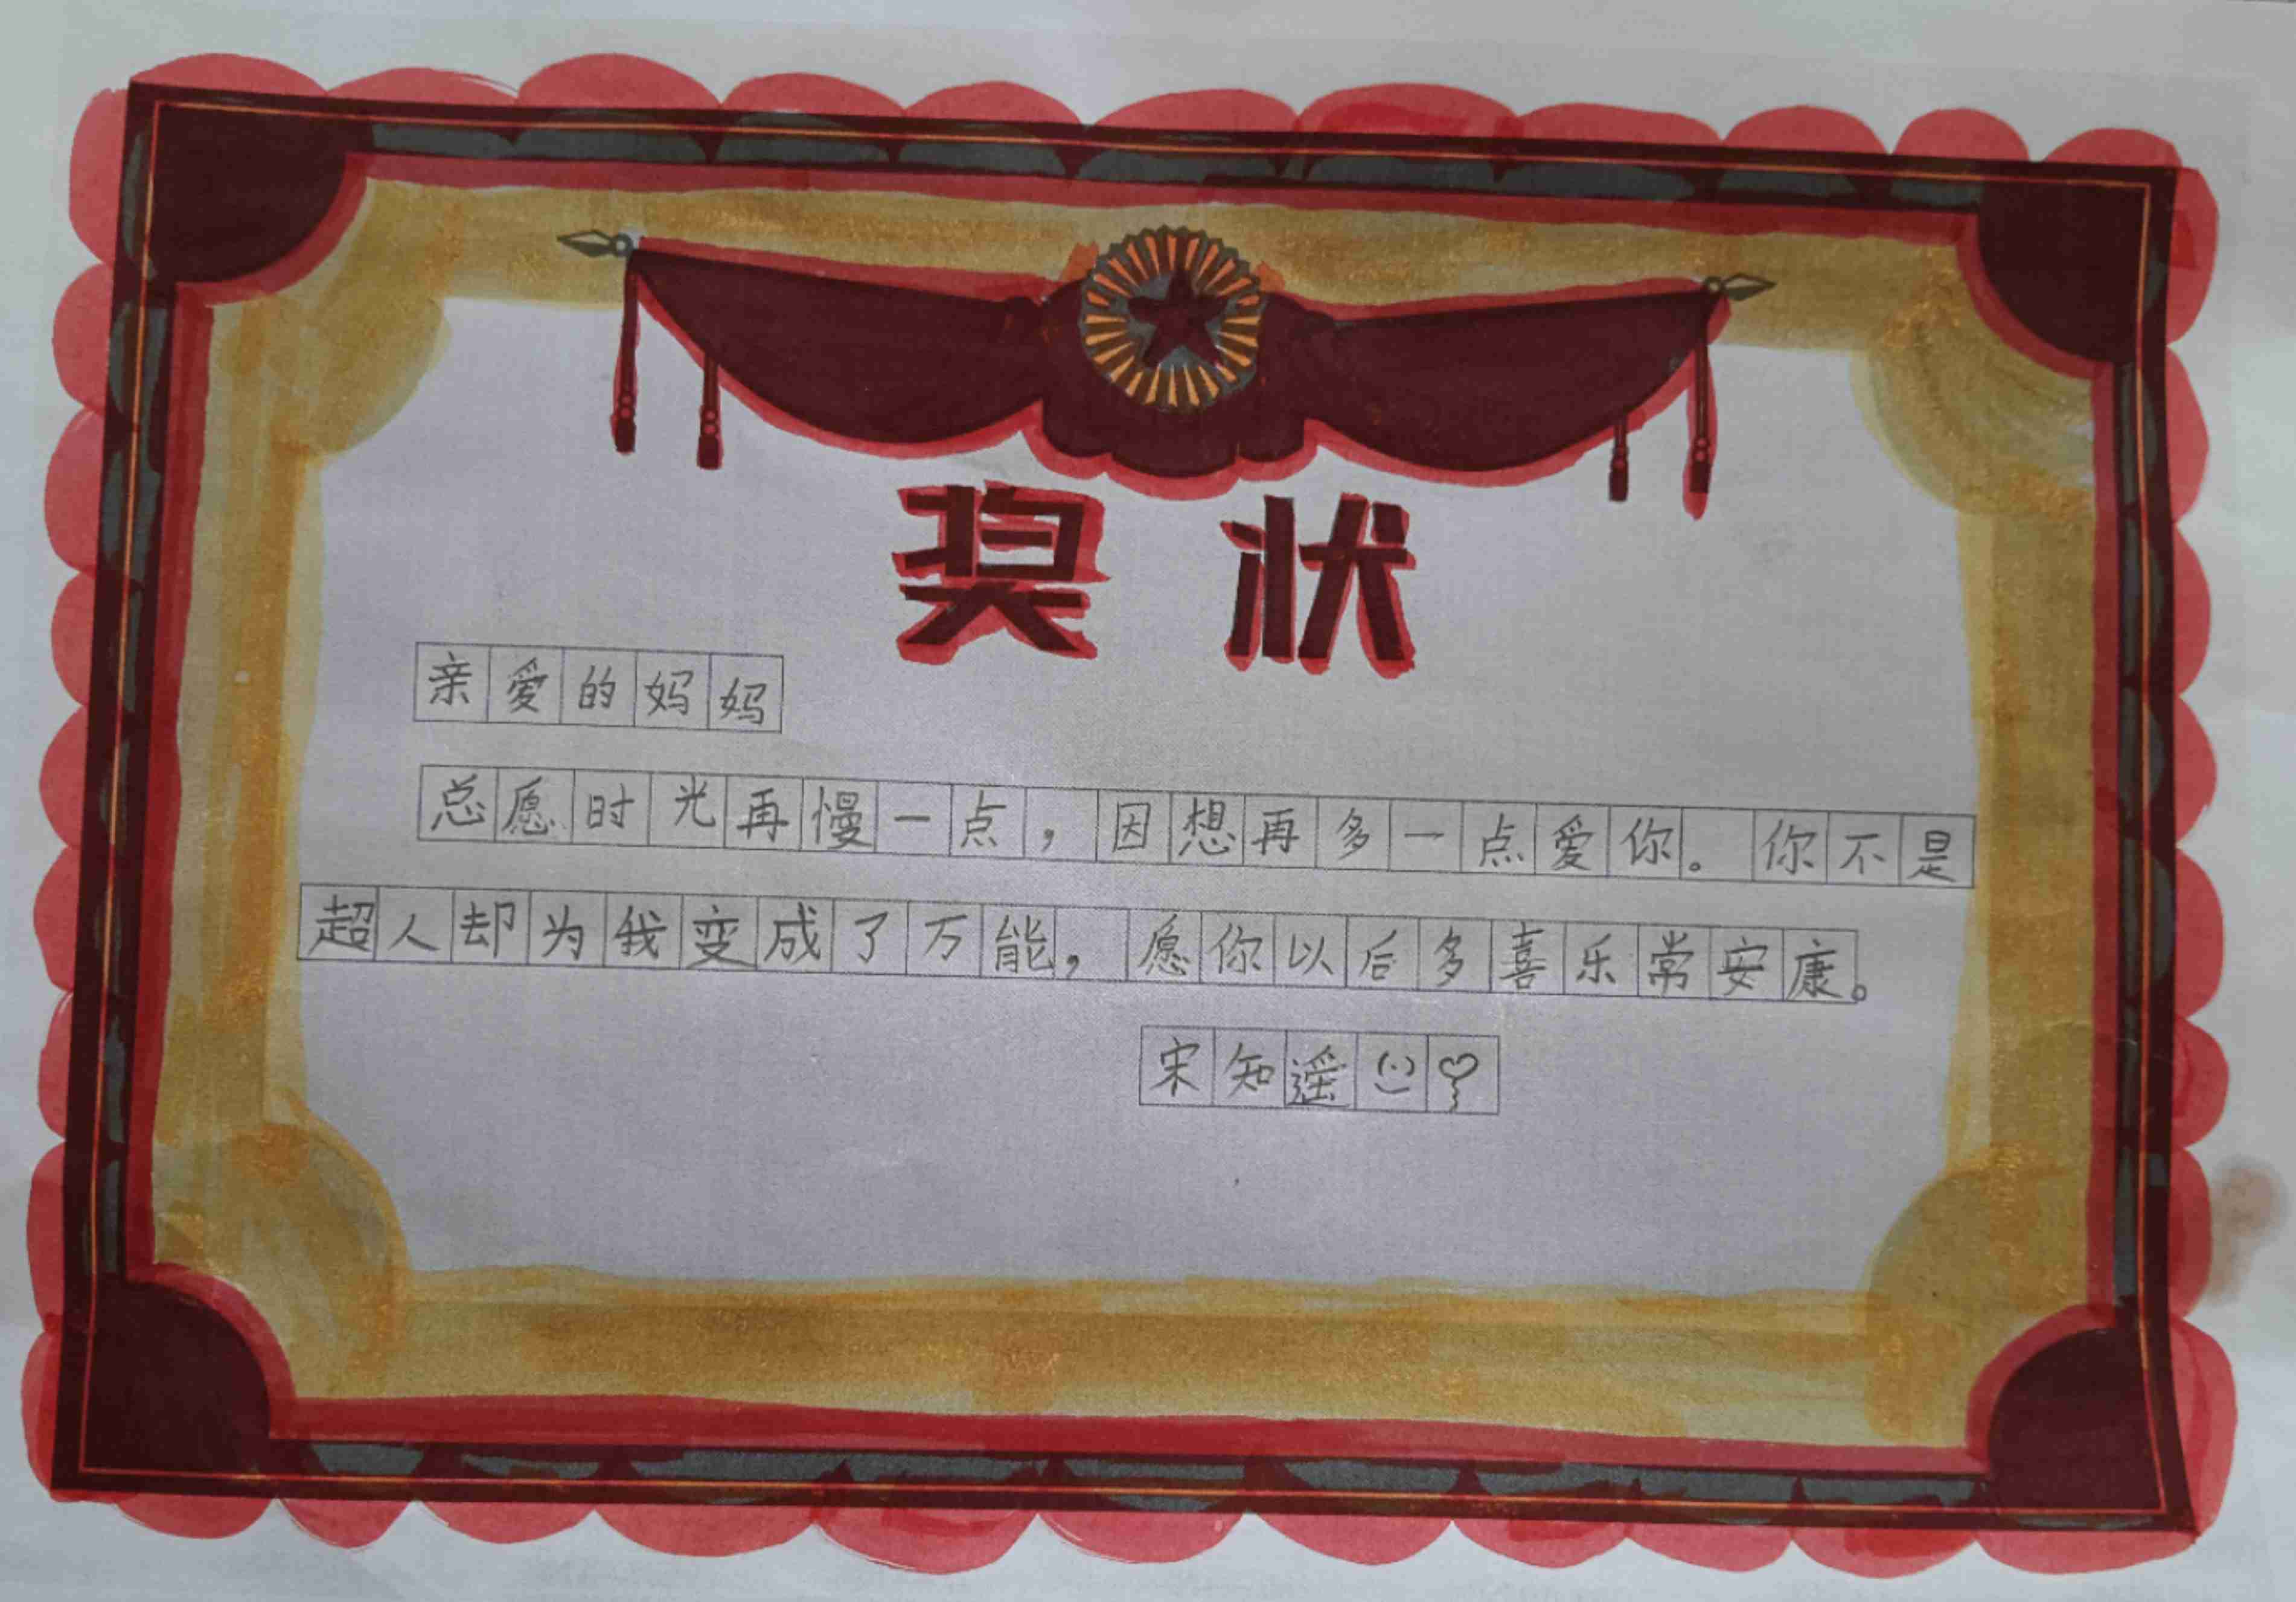 奖状
亲爱的妈妈
总愿时光再慢一点，因想再多一点爱你。你不是
超人却为我变成了万能，愿你以后多喜乐常安康。
宋知遥